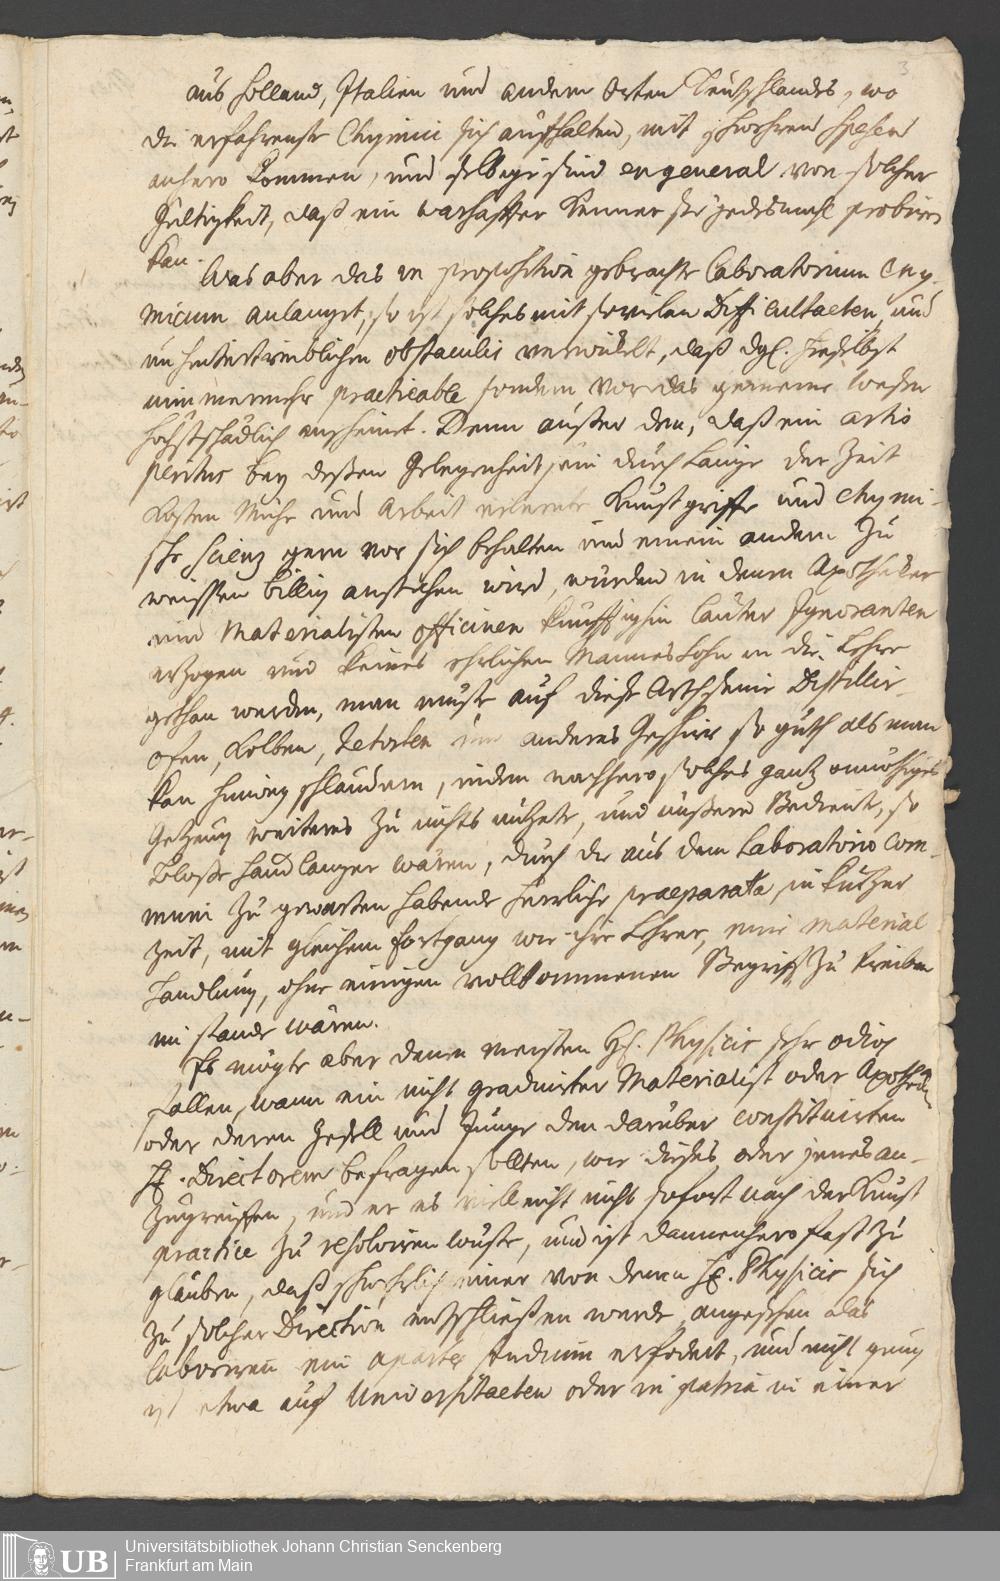 3
aus Holland, Italien und andern Orten Teutschlandes, wo
die erfahrenste Chymici sich aufhalten, mit schwehren Spesen
anhero kommen, und selbige sind en general von solcher
Gültigkeit, daß ein warhaffter Kenner sie jedesmahl probiren
kan.
Was aber das in proposition gebrachte Laboratorium Chy-
micum anlanget, so ist solches mit sovielen Difficultaeten und
unhintertreiblichen obstaculis verwickelt, daß dgl. hieselbst
nimmermehr practicable sondern vor das gemeine Wesen
höchstschädlich anscheinet. Denn außer dem, daß ein artis
peritus bey deßen Gelegenheit, ein durch Länge der Zeit
Kosten Mühe und Arbeit erlernte Kunstgriffe und Chymi-
sche Scienz gern vor sich behalten und einem andern zu
weissen billig anstehen wird, würden in denen Apothecker
und Materialisten officinen künfftighin lauter Ignoranten
erzogen und keines ehrlichen Mannes Sohn in die Lehre
gethan werden, man müste auf diese Arth seine Distillir-
ofen, Kolben, Retorten und anderes Geschirr so guth als man
kan hinweg schlaudern, indem nachhero solches gantz ohnnöthiges
Gezeug weiters zu nichts nützete, und unßere Bediente, so
bloße Handlanger wären, durch die aus dem Laboratorio com-
muni zu gewarten habende herrliche praeparata, in kurtzer
Zeit, mit gleichem Fortgang wie ihre Lehrer, eine Material
Handlung, ohne einigen vollkommenen Begriff zu treiben
im stande wären.
Es mögte aber denen meisten HE. Physicis sehr odios
fallen, wann ein nicht graduirter Materialist oder Apothecker
oder deren Gesell und Junge den darüber constituirten
H. Directorem befragen sollten, wie dieses oder jenes an-
zugreiffen, und er es vielleicht nicht sofort nach der Kunst
practice zu resolviren wüste, und ist dannenhero fast zu
glauben, daß schwehrlich einer von denen HE. Physicis sich
zu solcher Direction entschließen werde, angesehen das
laboriren ein apartes studium erfodert, und nicht genug
ist etwa auf Universitaeten oder in patria in einer
Universitätsbibliothek Johann Christian Senckenberg
Frankfurt am Main
UB